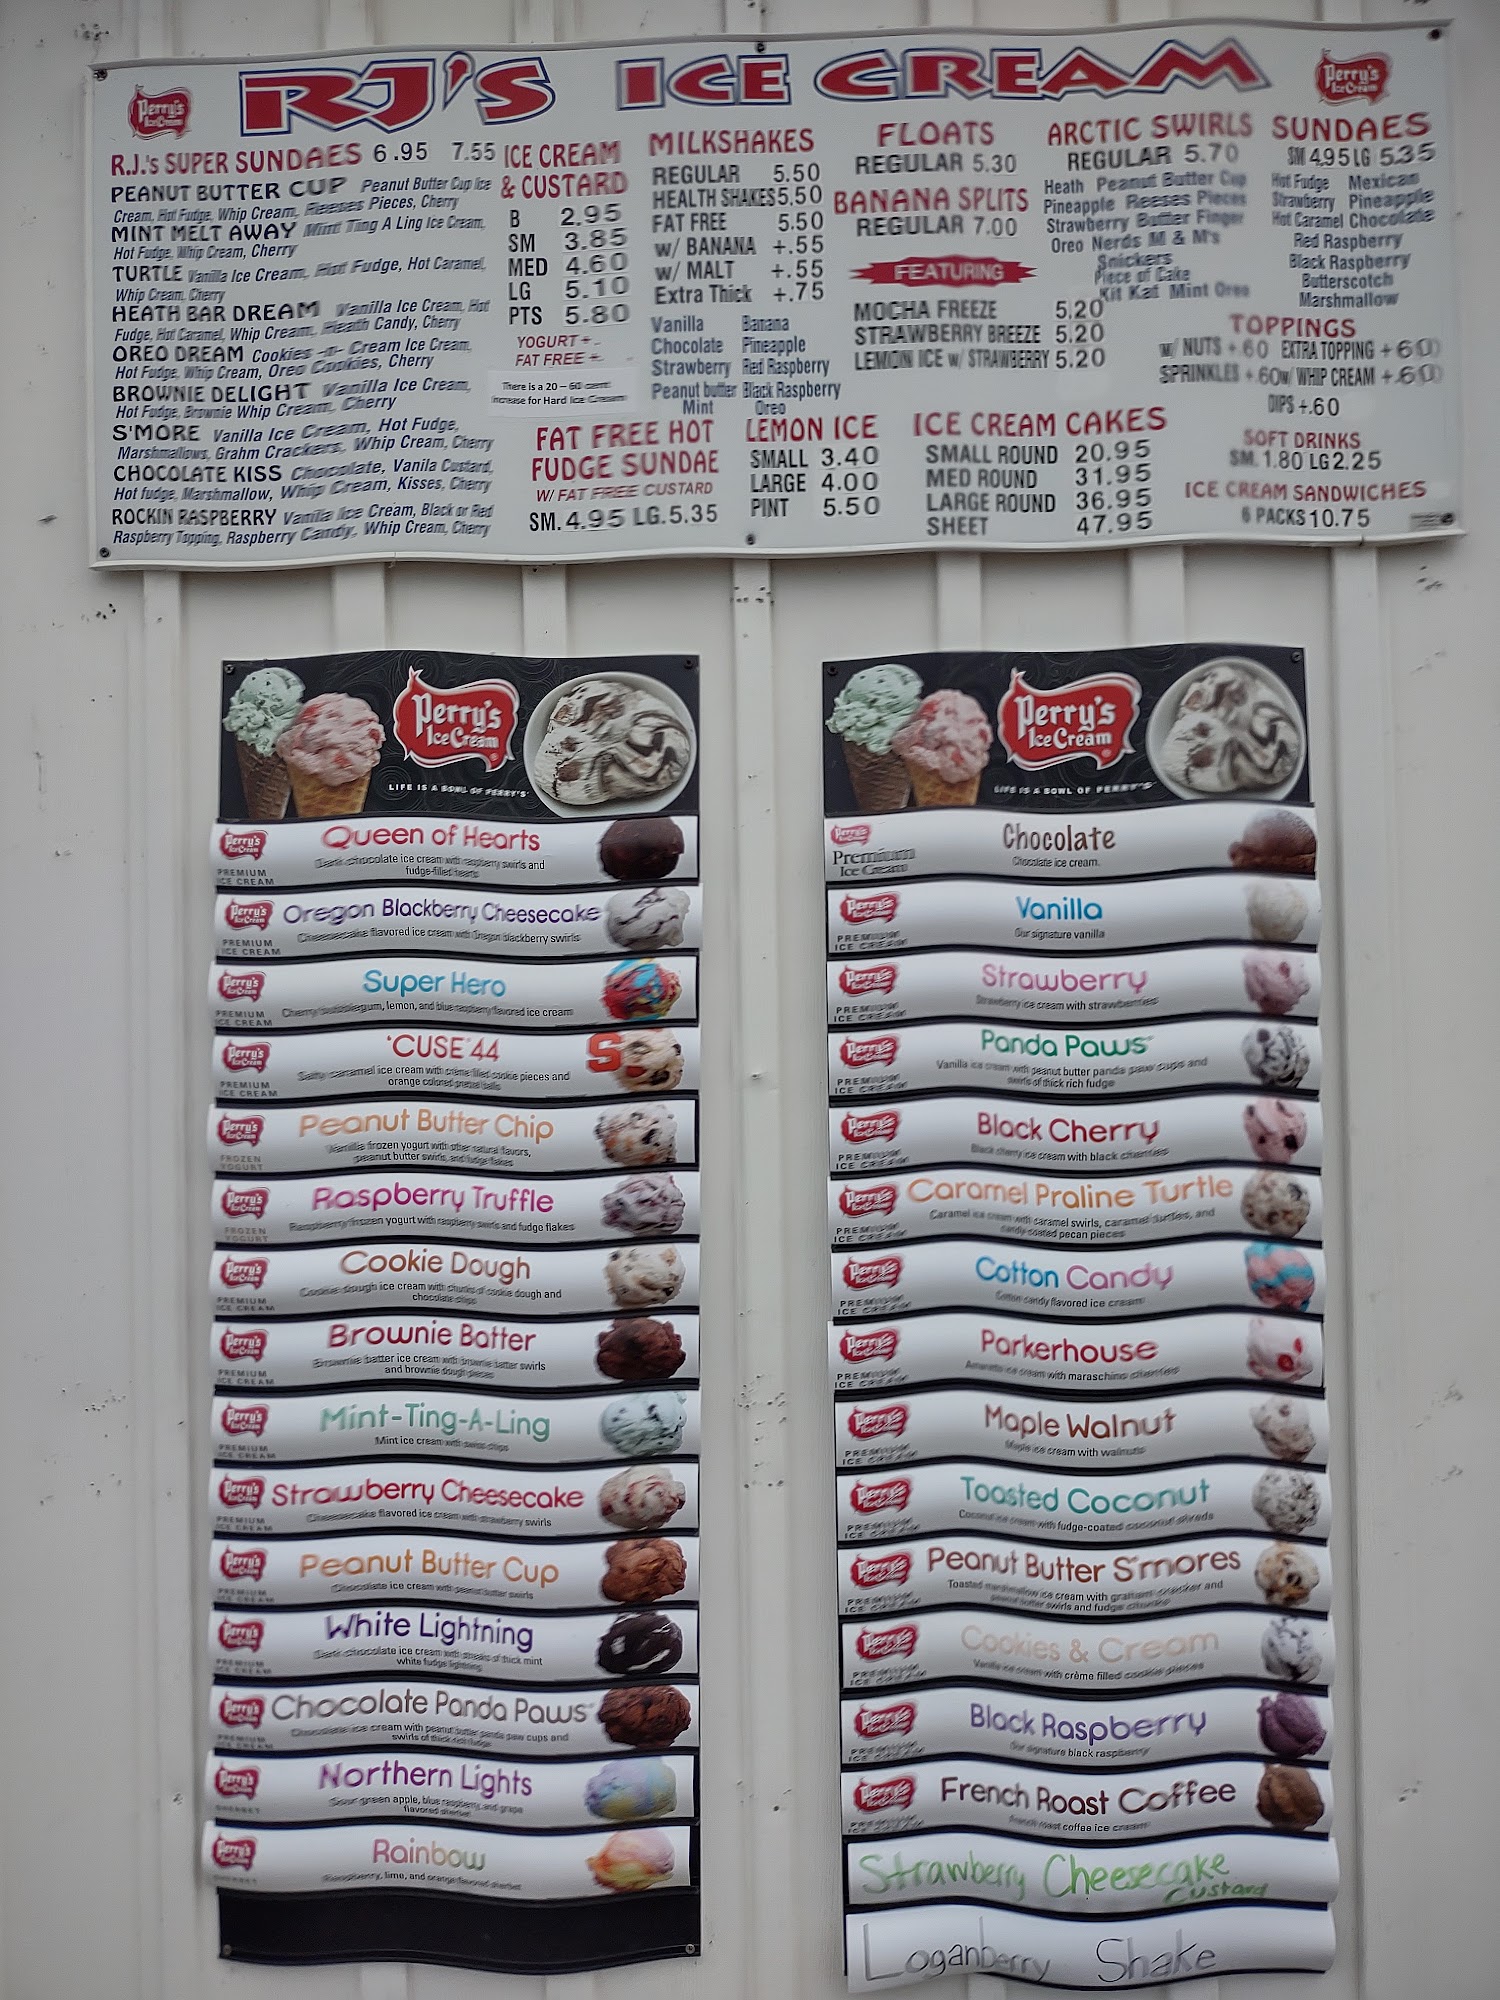 RJ'S ICE CREAM
Perry's
Ice Cream
Perry's
Ice Cream
R.J.'s SUPER SUNDAES 6.95 7.55
PEANUT BUTTER CUP Peanut Butter Cup Ice
Cream, Hot Fudge, Whip Cream, Reeses Pieces, Cherry
MINT MELT AWAY Mint Ting A Ling Ice Cream,
Hot Fudge, Whip Cream, Cherry
TURTLE Vanilla Ice Cream, Hot Fudge, Hot Caramel,
Whip Cream, Cherry
HEATH BAR DREAM Vanilla Ice Cream, Hot
Fudge, Hot Caramel, Whip Cream, Heath Candy, Cherry
OREO DREAM Cookies -n- Cream Ice Cream,
Hot Fudge, Whip Cream, Oreo Cookies, Cherry
BROWNIE DELIGHT Vanilla Ice Cream,
Hot Fudge, Brownie Whip Cream, Cherry
S'MORE Vanilla Ice Cream, Hot Fudge,
Marshmallows, Grahm Crackers, Whip Cream, Cherry
CHOCOLATE KISS Chocolate, Vanila Custard,
Hot fudge, Marshmallow, Whip Cream, Kisses, Cherry
ROCKIN RASPBERRY Vanilla Ice Cream, Black or Red
Raspberry Topping, Raspberry Candy, Whip Cream, Cherry
ICE CREAM
& CUSTARD
B 2.95
SM 3.85
MED 4.60
LG 5.10
PTS 5.80
YOGURT +
FAT FREE +
There is a 20 – 60 cent
increase for Hard Ice Cream
FAT FREE HOT
FUDGE SUNDAE
W/ FAT FREE CUSTARD
SM. 4.95 LG. 5.35
MILKSHAKES
REGULAR 5.50
HEALTH SHAKES 5.50
FAT FREE 5.50
w/ BANANA +.55
w/ MALT +.55
Extra Thick +.75
Vanilla Banana
Chocolate Pineapple
Strawberry Red Raspberry
Peanut butter Black Raspberry
Mint Oreo
LEMON ICE
SMALL 3.40
LARGE 4.00
PINT 5.50
FLOATS
REGULAR 5.30
BANANA SPLITS
REGULAR 7.00
FEATURING
MOCHA FREEZE 5.20
STRAWBERRY BREEZE 5.20
LEMON ICE W/ STRAWBERRY 5.20
ICE CREAM CAKES
SMALL ROUND 20.95
MED ROUND 31.95
LARGE ROUND 36.95
SHEET 47.95
ARCTIC SWIRLS
REGULAR 5.70
Heath Peanut Butter Cup
Pineapple Reeses Pieces
Strawberry Butter Finger
Oreo Nerds M & M's
Snickers
Piece of Cake
Kit Kat Mint Oreo
SUNDAES
SM 4.95 LG 5.35
Hot Fudge Mexican
Strawberry Pineapple
Hot Caramel Chocolate
Red Raspberry
Black Raspberry
Butterscotch
Marshmallow
TOPPINGS
W/ NUTS +.60 EXTRA TOPPING +.60
SPRINKLES +.60 W/ WHIP CREAM +.60
DIPS +.60
SOFT DRINKS
SM. 1.80 LG 2.25
ICE CREAM SANDWICHES
6 PACKS 10.75
Perry's
Ice Cream
LIFE IS A BOWL OF PERRY'S
Perry's Ice Cream
PREMIUM
ICE CREAM
Queen of Hearts
Dark chocolate ice cream with raspberry swirls and
fudge-filled hearts
Perry's Ice Cream
PREMIUM
ICE CREAM
Oregon Blackberry Cheesecake
Cheesecake flavored ice cream with Oregon blackberry swirls
Perry's Ice Cream
PREMIUM
ICE CREAM
Super Hero
Cherry bubblegum, lemon, and blue raspberry flavored ice cream
Perry's Ice Cream
PREMIUM
ICE CREAM
'CUSE '44
S
Salty caramel ice cream with crème filled cookie pieces and
orange colored pretzel balls
Perry's Ice Cream
FROZEN
YOGURT
Peanut Butter Chip
Vanilla frozen yogurt with other natural flavors,
peanut butter swirls, and fudge flakes
Perry's Ice Cream
FROZEN
YOGURT
Raspberry Truffle
Raspberry frozen yogurt with raspberry swirls and fudge flakes
Perry's Ice Cream
PREMIUM
ICE CREAM
Cookie Dough
Cookie dough ice cream with chunks of cookie dough and
chocolate chips
Perry's Ice Cream
PREMIUM
ICE CREAM
Brownie Batter
Brownie batter ice cream with brownie batter swirls
and brownie dough pieces
Perry's Ice Cream
PREMIUM
ICE CREAM
Mint-Ting-A-Ling
Mint ice cream with swiss chips
Perry's Ice Cream
PREMIUM
ICE CREAM
Strawberry Cheesecake
Cheesecake flavored ice cream with strawberry swirls
Perry's Ice Cream
PREMIUM
ICE CREAM
Peanut Butter Cup
Chocolate ice cream with peanut butter swirls
Perry's Ice Cream
PREMIUM
ICE CREAM
White Lightning
Dark chocolate ice cream with streaks of thick mint
white fudge lightning
Perry's Ice Cream
PREMIUM
ICE CREAM
Chocolate Panda Paws
Chocolate ice cream with peanut butter panda paw cups and
swirls of thick rich fudge
Perry's Ice Cream
SHERBET
Northern Lights
Sour green apple, blue raspberry and grape
flavored sherbet
Perry's Ice Cream
SHERBET
Rainbow
Raspberry, lime, and orange flavored sherbet
Perry's
Ice Cream
LIFE IS A BOWL OF PERRY'S
Perry's
Premium
Ice Cream
Chocolate
Chocolate ice cream.
Perry's Ice Cream
PREMIUM
ICE CREAM
Vanilla
Our signature vanilla
Perry's Ice Cream
PREMIUM
ICE CREAM
Strawberry
Strawberry ice cream with strawberries
Perry's Ice Cream
PREMIUM
ICE CREAM
Panda Paws
Vanilla ice cream with peanut butter panda paw cups and
swirls of thick rich fudge
Perry's Ice Cream
PREMIUM
ICE CREAM
Black Cherry
Black cherry ice cream with black cherries
Perry's Ice Cream
PREMIUM
ICE CREAM
Caramel Praline Turtle
Caramel ice cream with caramel swirls, caramel turtles, and
candy-coated pecan pieces
Perry's Ice Cream
PREMIUM
ICE CREAM
Cotton Candy
Cotton candy flavored ice cream
Perry's Ice Cream
PREMIUM
ICE CREAM
Parkerhouse
Amaretto ice cream with maraschino cherries
Perry's Ice Cream
PREMIUM
ICE CREAM
Maple Walnut
Maple ice cream with walnuts
Perry's Ice Cream
PREMIUM
ICE CREAM
Toasted Coconut
Coconut ice cream with fudge-coated coconut shreds
Perry's Ice Cream
PREMIUM
ICE CREAM
Peanut Butter S'mores
Toasted marshmallow ice cream with graham cracker and
peanut butter swirls and fudge chunks
Perry's Ice Cream
PREMIUM
ICE CREAM
Cookies & Cream
Vanilla ice cream with crème filled cookie pieces
Perry's Ice Cream
PREMIUM
ICE CREAM
Black Raspberry
Our signature black raspberry
Perry's Ice Cream
PREMIUM
ICE CREAM
French Roast Coffee
French roast coffee ice cream
Strawberry Cheesecake
Custard
Loganberry Shake